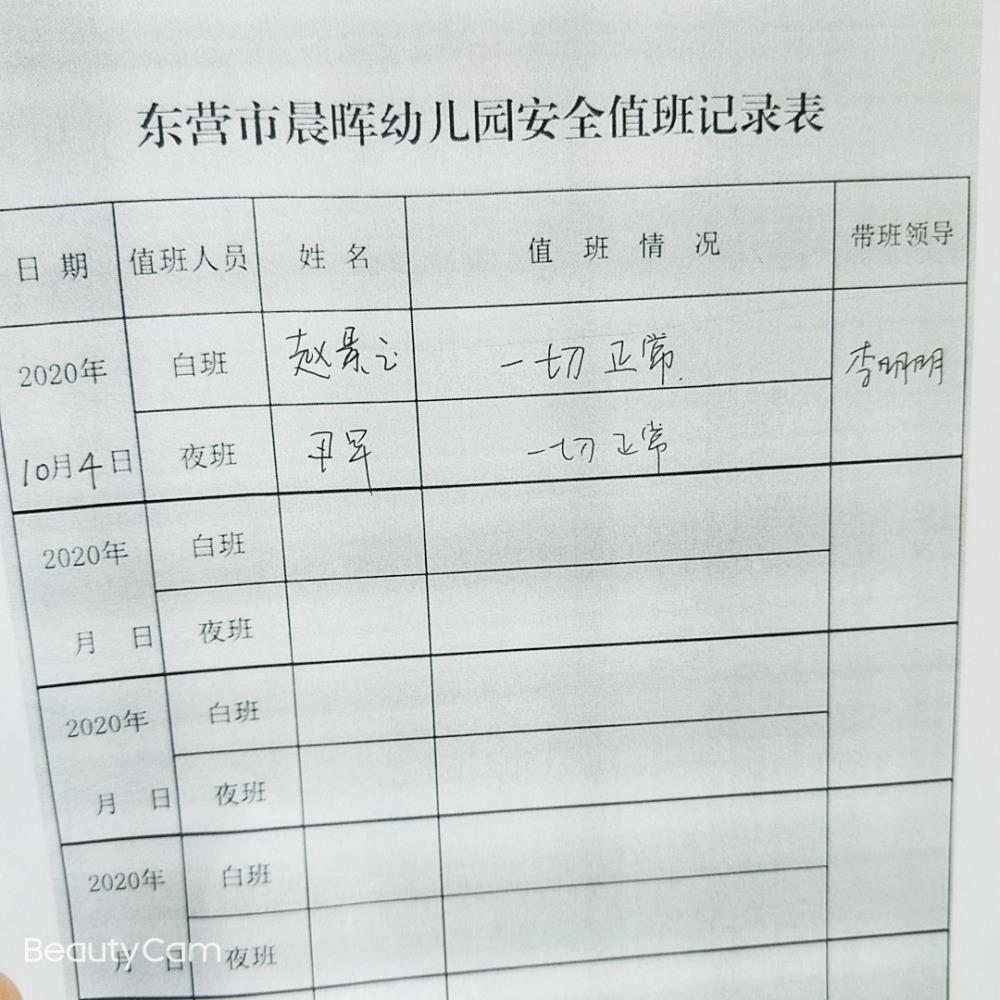 东营市晨晖幼儿园安全值班记录表
日 期 值班人员 姓 名 值 班 情 况 带班领导
2020年 白班 赵景 一切正常. 李明明
10月4日 夜班 一切正常
2020年 白班
月 日 夜班
2020年 白班
月 日 夜班
2020年 白班
月 日 夜班
BeautyCam